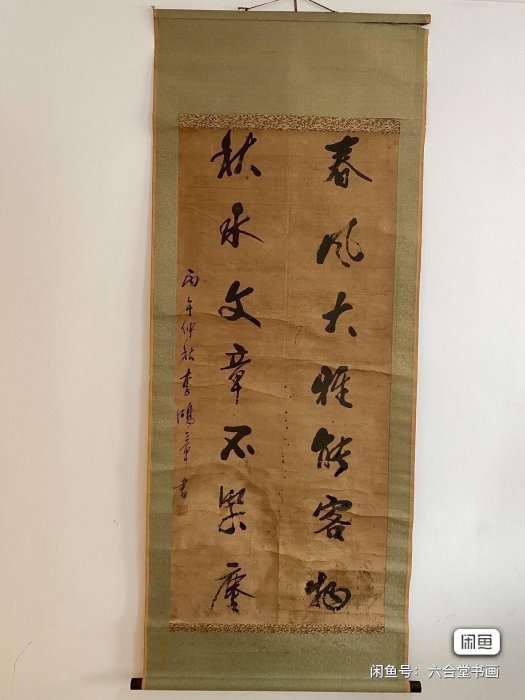 春風大雅能容物
秋水文章不染塵
丙午仲秋李鴻章書
闲鱼
闲鱼号：六合堂书画